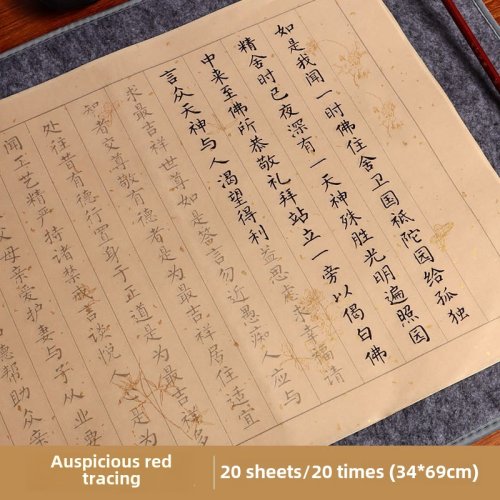 如是我闻一时佛住舍卫国祇陀园给孤独
精舍时已夜深有一天神殊胜光明遍照园
中来至佛所恭敬礼拜站立一旁以偈白佛
言众天神与人渴望得利益思虑求幸福请
求最吉祥世尊如是答言勿近愚痴人应与
智者交尊敬有德者是为最吉祥居住适宜
处往昔有德行置身于正道是为最吉祥多
闻工艺精严持诸禁戒言谈悦人
父母亲爱护妻与子从业要
德帮助众亲
Auspicious red
tracing
20 sheets/20 times (34*69cm)